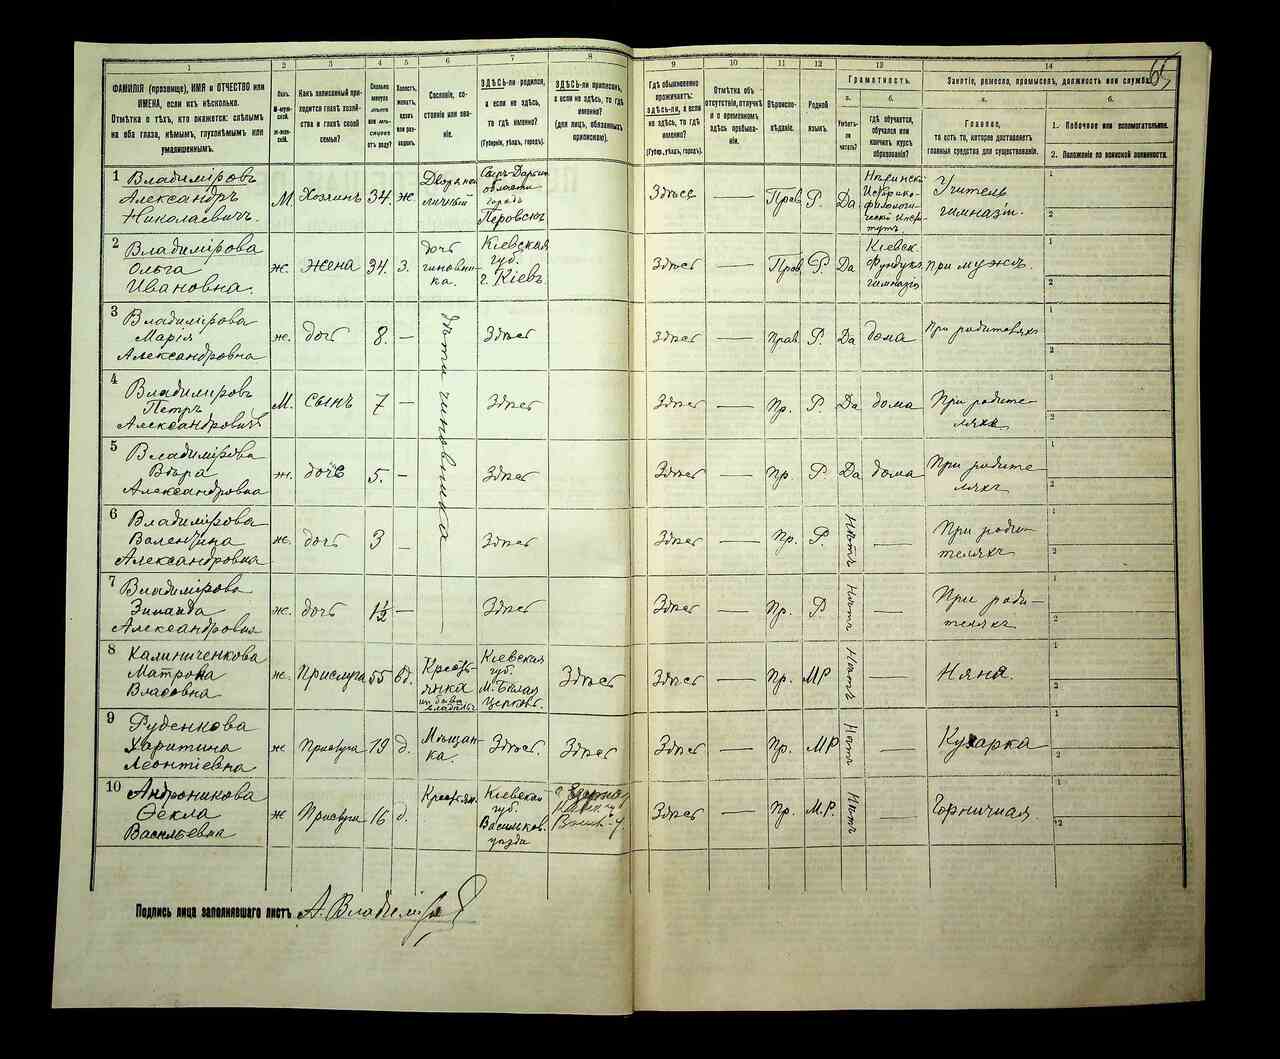 65
1
2
3
4
5
6
7
8
ФАМИЛІЯ (прозвище), ИМЯ и ОТЧЕСТВО или
ИМЕНА, если ихъ нѣсколько.
Отмѣтка о тѣхъ, кто окажется: слѣпымъ
на оба глаза, нѣмымъ, глухонѣмымъ или
умалишеннымъ.
Полъ.
М-муж-
ской.
Ж-жен-
скій.
Какъ записанный при-
ходится главѣ хозяй-
ства и главѣ своей
семьи?
Сколько
минуло
лѣтъ
или мѣ-
сяцевъ
отъ роду?
Холостъ,
женатъ,
вдовъ
или раз-
веденъ.
Сословіе, со-
стояніе или зва-
ніе.
ЗДѢСЬ-ли родился,
а если не здѣсь,
то гдѣ именно?
(Губернія, уѣздъ, городъ).
ЗДѢСЬ-ли приписанъ,
а если не здѣсь, то гдѣ
именно?
(для лицъ, обязанныхъ
припискою).
9
10
11
12
13
14
Гдѣ обыкновенно
проживаетъ:
ЗДѢСЬ-ли, а если
не здѣсь, то гдѣ
именно?
(Губер., уѣздъ, городъ).
Отмѣтка объ
отсутствіи, отлучкѣ
и о временномъ
здѣсь пребыва-
ніи.
Вѣроиспо-
вѣданіе.
Родной
языкъ.
Грамотность.
а.
б.
Умѣетъ-
ли
читать?
гдѣ обучается,
обучался или
кончилъ курсъ
образованія?
Занятіе, ремесло, промыселъ, должность или служба.
а.
б.
Главное,
то есть то, которое доставляетъ
главныя средства для существованія.
1. Побочное или вспомогательное.
2. Положеніе по воинской повинности.
1 Владиміровъ
Александръ
Николаевичъ.
М. Хозяинъ 34. ж.
Дворянинъ
личный
Сыръ-Дарьин
области
городъ
Перовскъ
Здѣсь — Прав. Р. Да.
Нѣжинскій
Историко-
филологи-
ческій Инсти-
тутъ.
Учитель
гимназіи.
1
2
2 Владимірова
Ольга
Ивановна.
ж. жена 34. З.
дочь
чиновни-
ка.
Кіевская
губ.
г. Кіевъ.
Здѣсь — Прав Р. Да
Кіевск.
Фундукл.
гимназія
при мужѣ.
1
2
3 Владимірова
Марія
Александровна
ж. дочь 8. —
дѣти чиновника
Здѣсь
Здѣсь — Прав. Р. Да дома
При родителяхъ
1
2
4 Владиміровъ
Петръ
Александровичъ
М. сынъ 7 — Здѣсь
Здѣсь — Пр. Р. Да дома
При родите-
ляхъ
1
2
5 Владимірова
Вѣра
Александровна
ж. дочь 5. — Здѣсь
Здѣсь — Пр. Р. Да дома
При родите
ляхъ
1
2
6 Владимірова
Валентина
Александровна
ж. дочь 3 — Здѣсь
Здѣсь — Пр. Р. Нѣтъ —
При роди-
теляхъ
1
2
7 Владимірова
Зинаида
Александровна
ж. дочь 1½ — Здѣсь
Здѣсь — Пр. Р Нѣтъ —
При роди-
теляхъ
1
2
8 Калиниченкова
Матрона
Власовна
ж. Прислуга 55 вд.
Кресть-
янка
Кіевская
губ.
М. Бѣлая
Церковь.
Здѣсь
Здѣсь — Пр. МР Нѣтъ — Няня.
1
2
9 Руденкова
Харитина
Леонтіевна
ж Прислуга 19 д.
Мѣщан-
ка.
Здѣсь. Здѣсь
Здѣсь — Пр. МР Нѣтъ — Кухарка
1
2
10 Андроникова
Ѳекла
Васильевна
ж Прислуга 16 д.
Крестьян.
Кіевской
губ.
Васильков.
уѣзда
Здѣсь — Пр. М.Р. Нѣтъ — Горничная
1
2
Подпись лица заполнявшаго листъ А. Владиміровъ